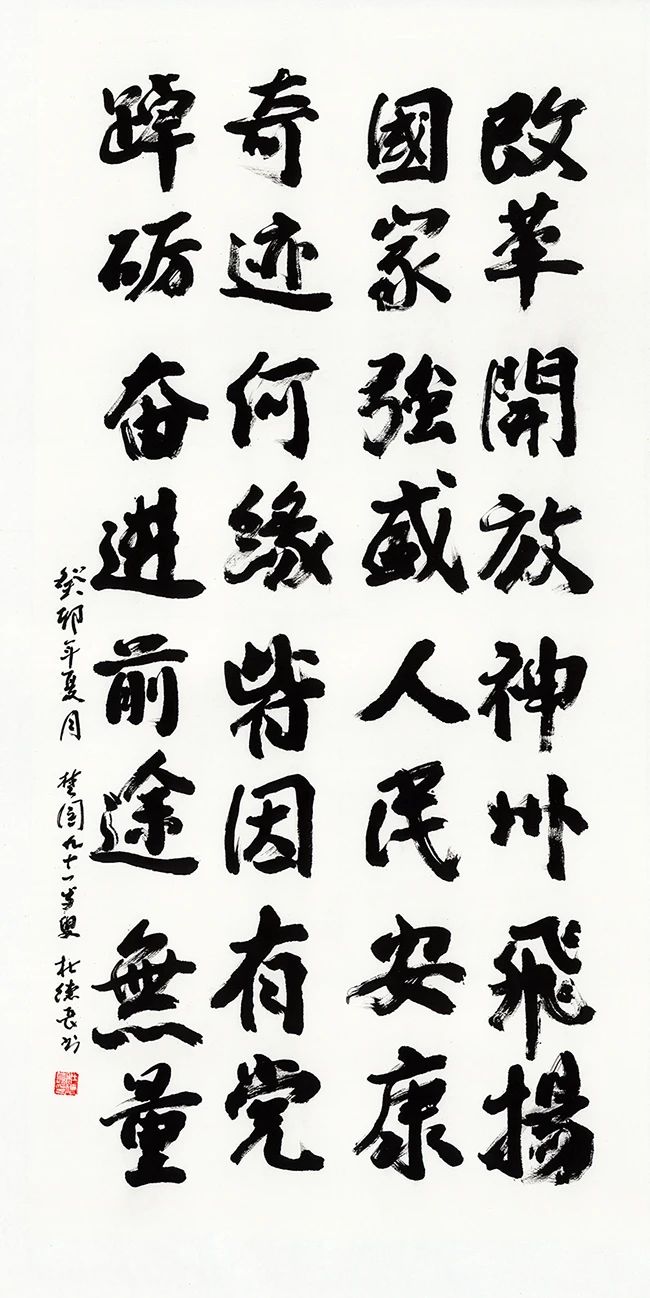 改革開放神州飛揚
國家強盛人民安康
奇迹何緣皆因有党
踔砺奋進前途無量
癸卯年夏月 楚園九十一岁叟 杜德長书